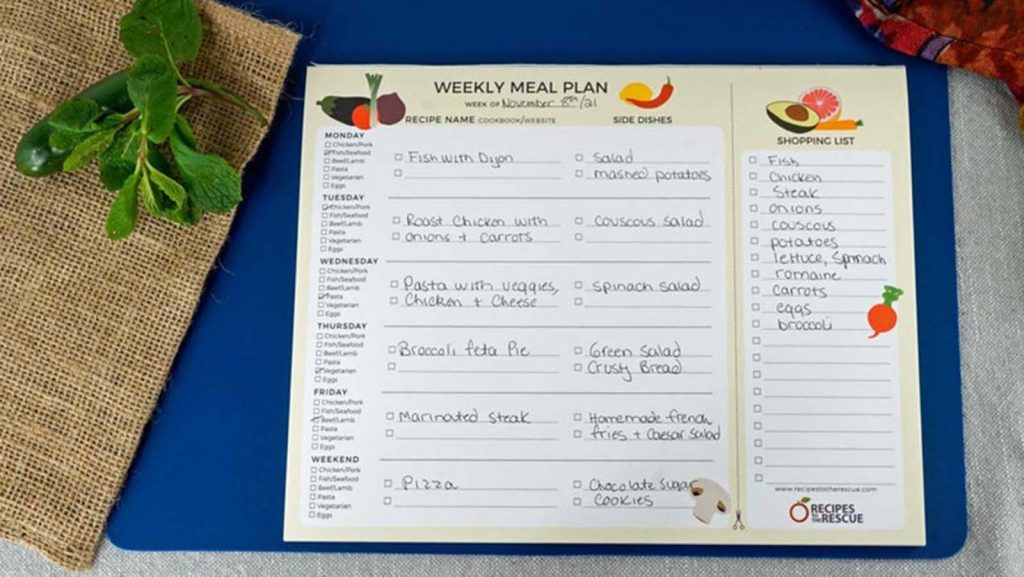 WEEKLY MEAL PLAN
WEEK OF November 8th/21
RECIPE NAME COOKBOOK/WEBSITE
SIDE DISHES
MONDAY
Chicken/Pork
Fish/Seafood
Beef/Lamb
Pasta
Vegetarian
Eggs
Fish with Dijon
Salad
mashed potatoes
TUESDAY
Chicken/Pork
Fish/Seafood
Beef/Lamb
Pasta
Vegetarian
Eggs
Roast Chicken with
onions + carrots
couscous salad
WEDNESDAY
Chicken/Pork
Fish/Seafood
Beef/Lamb
Pasta
Vegetarian
Eggs
Pasta with veggies,
Chicken + Cheese
spinach salad
THURSDAY
Chicken/Pork
Fish/Seafood
Beef/Lamb
Pasta
Vegetarian
Eggs
Broccoli feta Pie
Green Salad
Crusty Bread
FRIDAY
Chicken/Pork
Fish/Seafood
Beef/Lamb
Pasta
Vegetarian
Eggs
Marinated steak
Homemade french
fries + Caesar salad
WEEKEND
Chicken/Pork
Fish/Seafood
Beef/Lamb
Pasta
Vegetarian
Eggs
Pizza
Chocolate Sugar
Cookies
SHOPPING LIST
Fish
Chicken
Steak
onions
couscous
potatoes
lettuce, Spinach
romaine
carrots
eggs
broccoli
www.recipestotherescue.com
RECIPES
TO THE RESCUE